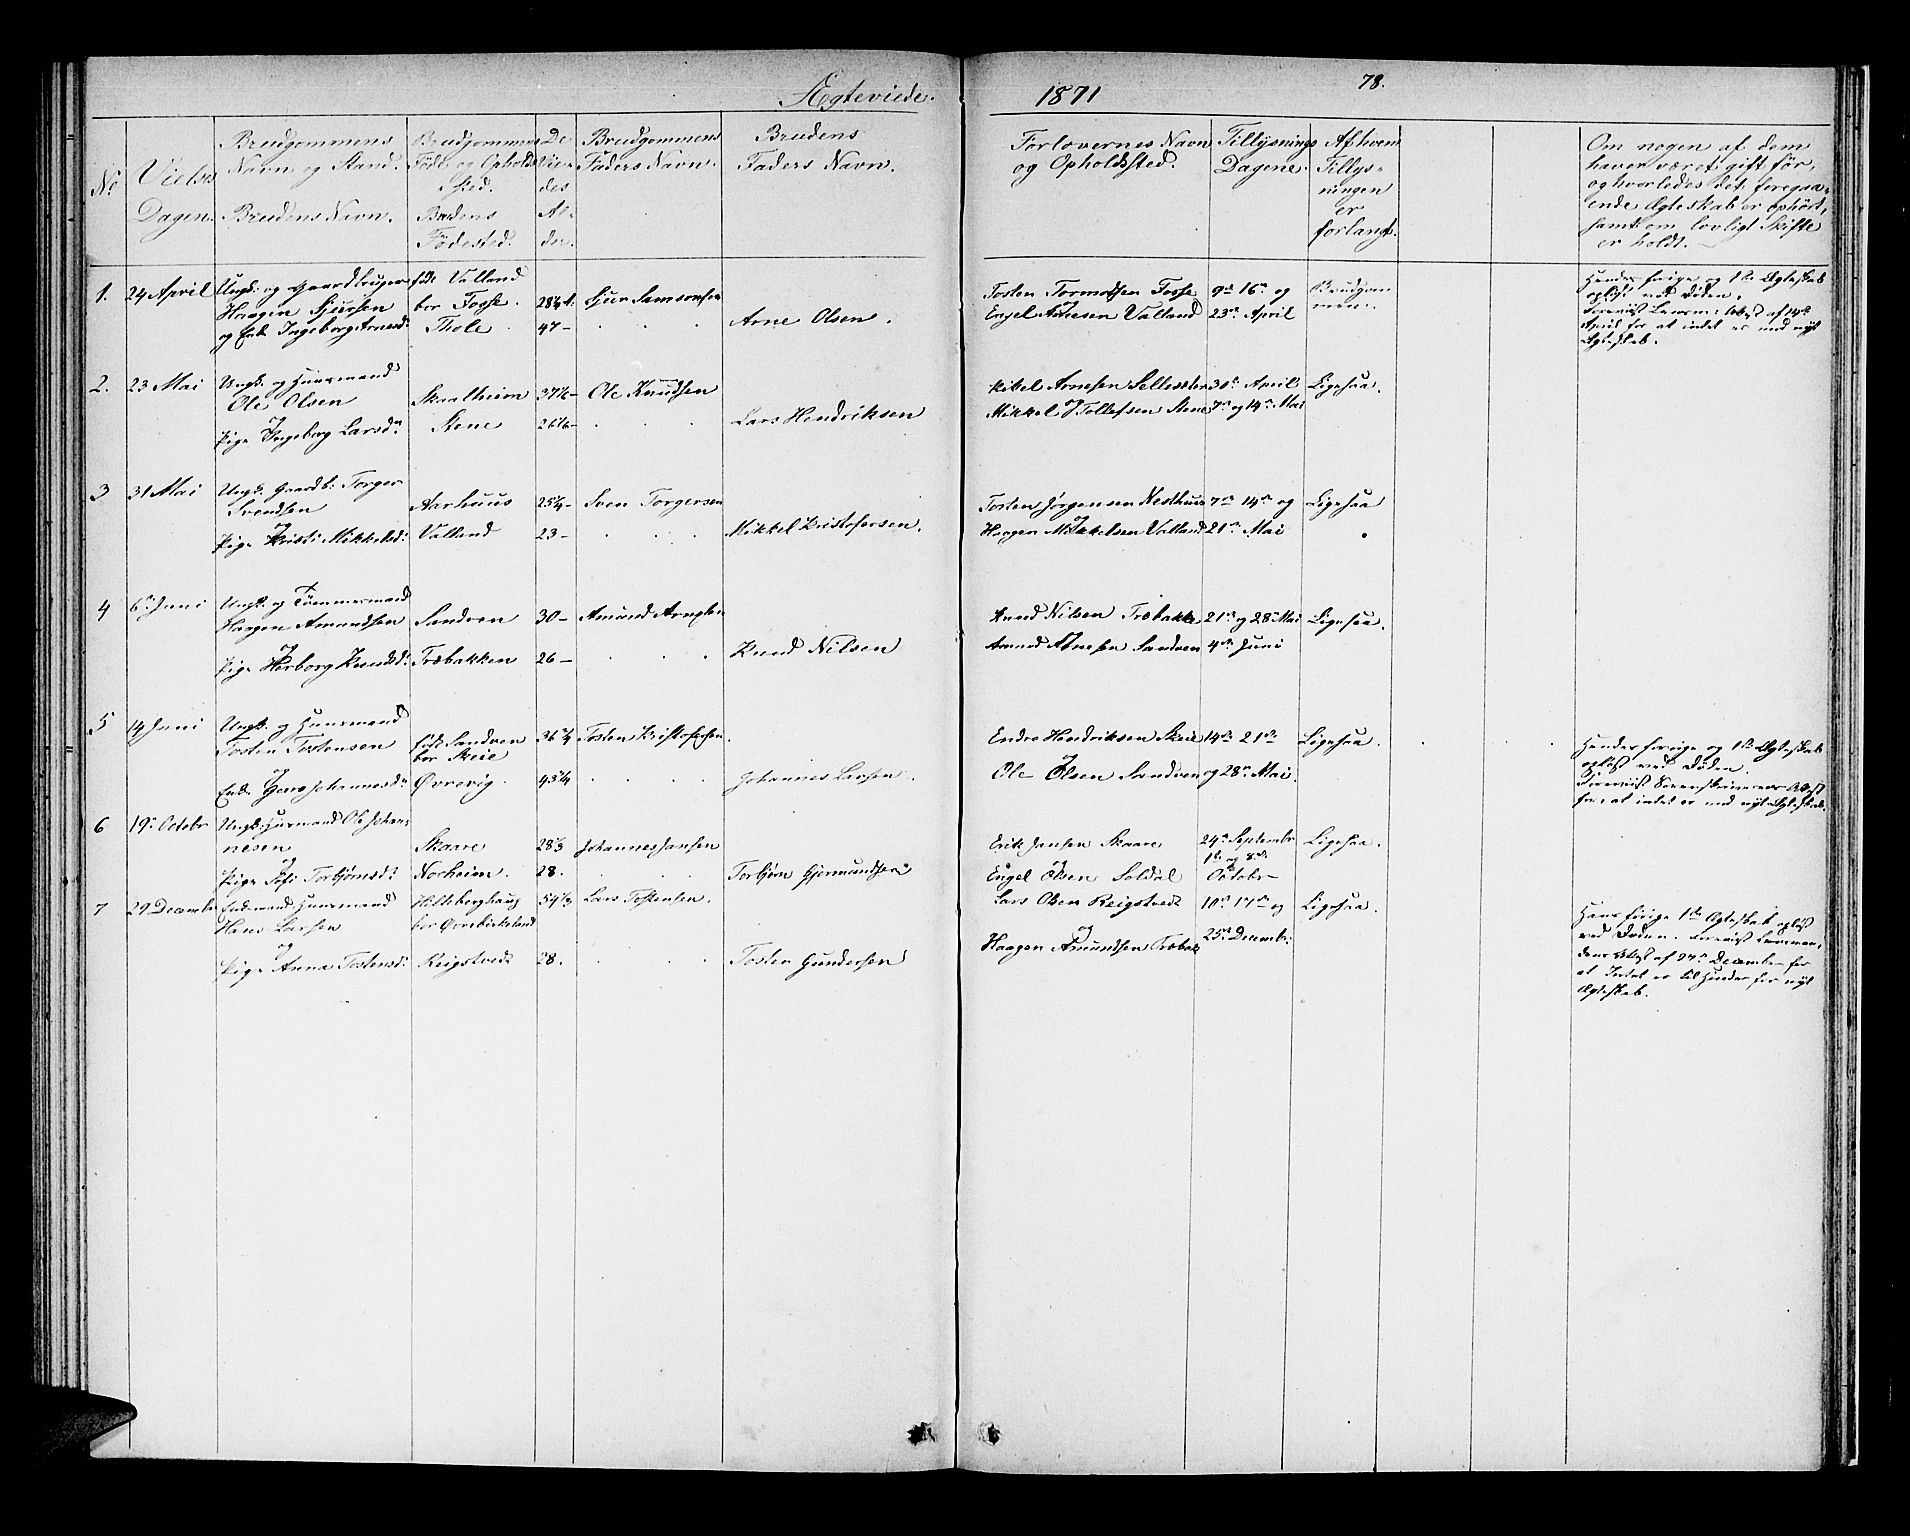 Ægteviede.
1871
78.
No
Vielses Dagen.
Brudgommens Navn og Stand.
Brudens Navn.
Brudgommens Føde og Opholds Sted.
Brudens Födested.
De Viedes Alder.
Brudgommens Faders Navn.
Brudens Faders Navn.
Forlovernes Navn og Opholdssted.
Tillysnings Dagene.
Af hvem Tillysningen er forlangt.
Om nogen af dem
haver været gift för,
og hvorledes det foregaa-
ende Ægteskab er ophört,
samt om lovligt Skifte
er holdt.
1. 24 April Ungk. og Gaardbruger
Haagen Sjursen
og Enke Ingeborg Arnesd:
föd Valland
bor Fosse.
Thole.
28¼ A.
47 -
Sjur Samsonsen
Arne Olsen.
Tosten Tormodsen Fosse
Engel Arnesen Valland
9de 16de og
23de April
Brudgommen.
Hendes forige og 1ste Ægteskab
oplöst ved Döden.
Forevist Lensm: Attest af 14de
April for at intet er mod nyt
Ægteskab.
2. 23 Mai Ungk. og Huusmand
Ole Olsen
og
Pige Ingeborg Larsdr
Skaalheim
Stene
37½ -
Ole Knudsen
Lars Hendriksen
Arnesen
Mikkel Tollefsen Stene
30te April
7de og 14de Mai
Ligesaa.
3 31 Mai Ungk. Gaardb: Torger
Svendsen
og
Pige Kristi Mikkelsd:
Aarhuus
Valland
25¼ -
23 -
Sven Torgersen
Mikkel Kristofersen.
Tosten Jörgensen Nesthuus
og
Haagen Mikkelsen Valland
7de 14de og
21de Mai
Ligesaa
4 6te Juni Ungk. og Tömmermand
Haagen Amundsen
og
Pige Herborg Knudsd:
Sandven
Træbakken
30 -
26 -
Amund
Knud Nilsen
Knud Nilsen Træbakke
Sandven
21de og 28de Mai
4de Juni
Ligesaa.
5 14 Juni Ungk. og Huusmand
Tosten Tostensen
og
Enke Johannesdr
föd Sandven
bor Skeie
Övrevig.
36¾
43¼
Tosten Kristofersen.
Johannes Larsen.
Endre Hendriksen Skeie
og
Ole Olsen Sandven
14de 21de
og 28de Mai.
Ligesaa.
Hendes forige og 1ste Ægteskab
oplöst ved Döden.
Forevist Sorenskriverens Attest
for, at intet er mod nyt Ægteskab.
6 19de Octobr Ungk: Husmand Ole Johan-
nesen
og
Pige Sofi Torbjörnsd:
Skaare
Norheim.
28⅓
28.
Johannes Jansen
Torbjörn Gjermundsen
Erik Jansen Skaare
og
Engel Olsen Soldal
24de Septembr
1ste og 8de
Octobr
Ligesaa.
7 29 Decembr Enkemand Huusmand
Hans Larsen
og
Pige Anna Tostensd:
bor Övrebirkeland
Reigstvedt
54½
28.
Lars Tostensen.
Tosten Gundersen
Lars Olsen Reigstvedt
og
Haagen Amundsen Træbak
10de 17de og
25de Decembr:
Ligesaa.
Hans förige 1ste Ægteskab oplöst
ved Döden. Forevist Lensman-
dens Attest af 27de December for
at Intet er til Hinder for nyt
Ægteskab.